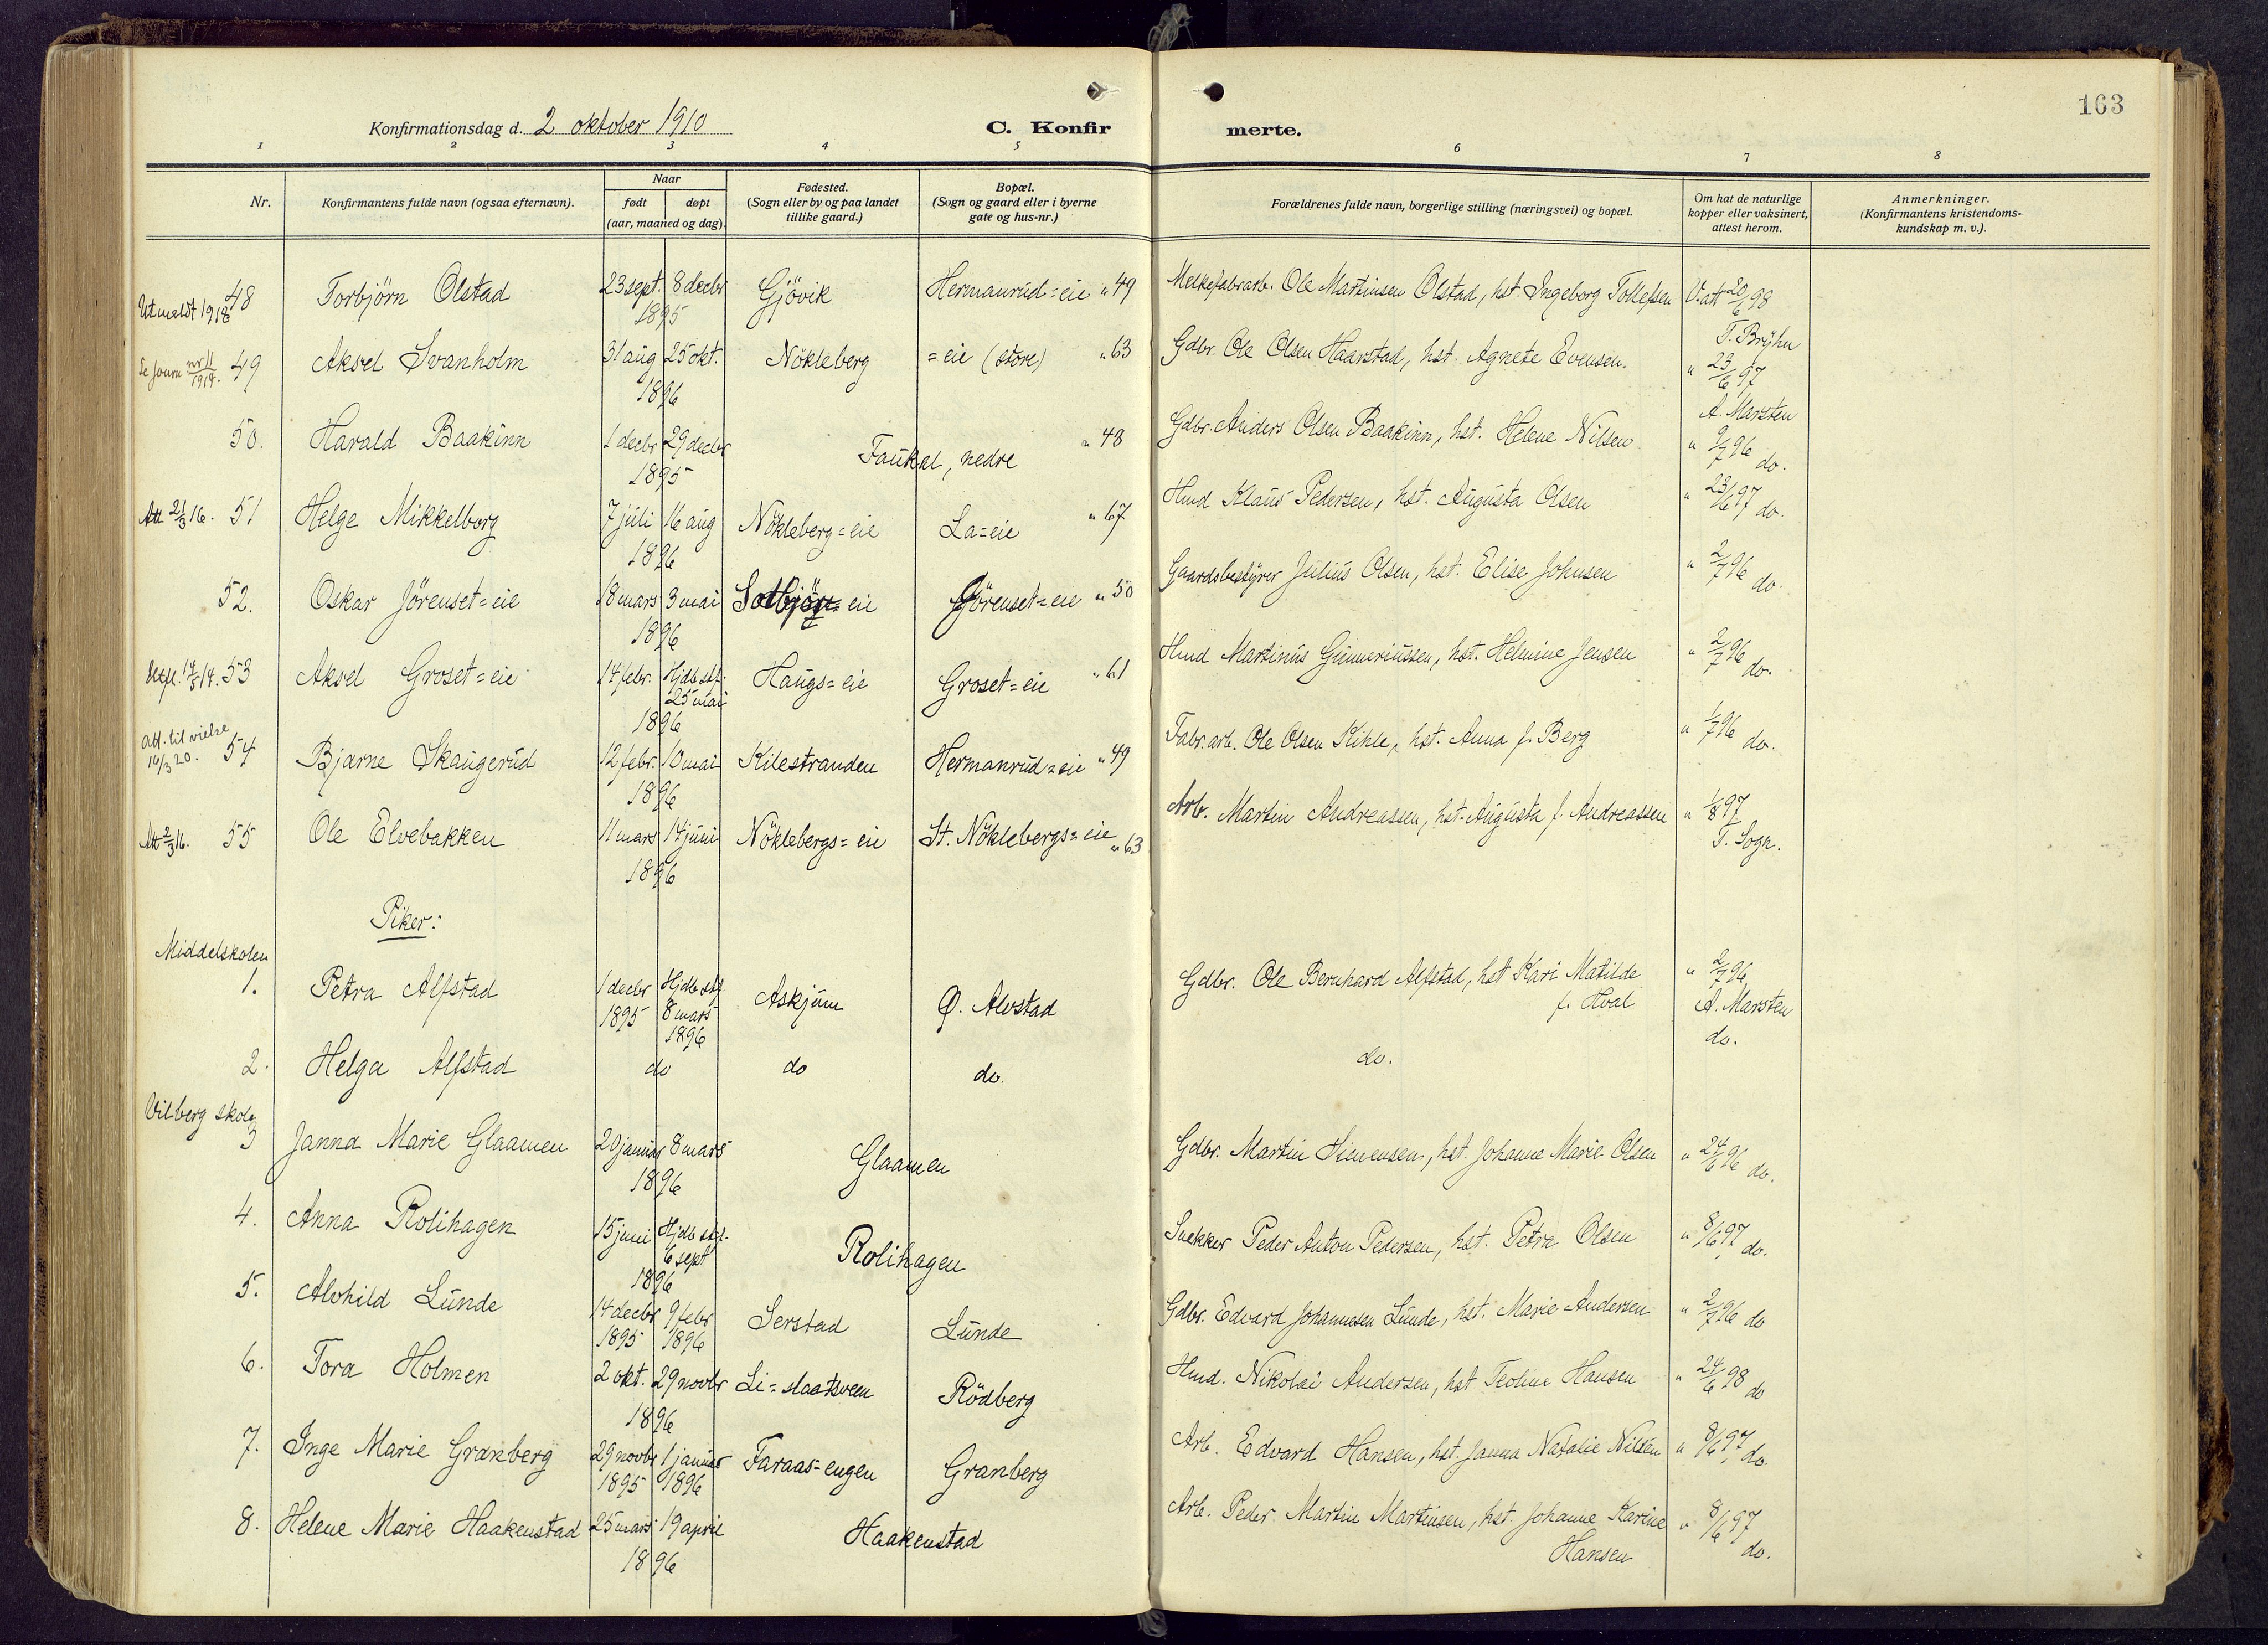 163
Konfirmationsdag d. 2 oktober 1910
C. Konfirmerte.
1 2 3 4 5 6 7 8
Nr.
Konfirmantens fulde navn (ogsaa efternavn).
Naar
født døpt
(aar, maaned og dag).
Fødested.
(Sogn eller by og paa landet
tillike gaard.)
Bopæl.
(Sogn og gaard eller i byerne
gate og hus-nr.)
Forældrenes fulde navn, borgerlige stilling (næringsvei) og bopæl.
Om hat de naturlige
kopper eller vaksinert,
attest herom.
Anmerkninger.
(Konfirmantens kristendoms-
kundskap m. v.).
Utmeldt 1918 48 Torbjörn Olstad 23 sept. 8 decbr 1895 Gjövik Hermanrud=eie " 49 Melkefabrarb. Ole Martinsen Olstad, hst. Ingeborg Tollefsen V. att 20/6 98
T. Bryhn
Se journ nr 11/1914. 49 Aksel Svanholm 31 aug 25 okt. 1896 Nökleberg =eie (store) " 63 Gdbr. Ole Olsen Haarstad, hst. Agnete Evensen. " 23/6 97
A. Marsten
50. Harald Baakinn 1 decbr 29 decbr 1895 Faukal, nedre " 48 Gdbr. Anders Olsen Baakinn, hst. Helene Nilsen " 9/7 96 do.
Att 21/3 16. 51 Helge Mikkelborg 7 juli 16 aug 1896 Nökleberg=eie La=eie " 67 Hmd Klaus Pedersen, hst. Augusta Olsen " 23/6 97 do.
52. Oskar Jörenset=eie 18 mars 3 mai 1896 eie Jörenset=eie " 50 Gaardsbestyrer Julius Olsen, hst. Elise Johnsen " 2/7 96 do.
14/5 14. 53 Aksel Groset=eie 14 febr. Hjdb stf. 25 mai 1896 Haugs=eie Groset=eie " 61 Hmd Martinus Gunneriussen, hst. Helmine Jensen " 2/7 96 do.
Att. til vielse 10/3 20. 54 Bjarne Skaugerud 12 febr. 10 mai 1896 Kilestranden Hermanrud=eie " 49 Fabr. arb. Ole Olsen Kihle, hst. Anna f. Berg " 1/7 96 do.
Att 2/3 16. 55 Ole Elvebakken 11 mars 14 juni 1896 Nöklebergs=eie St. Nöklebergs=eie " 63 Arb. Martin Andreassen, hst. Augusta f. Andreassen " 1/8 97
T. Sogn.
Piker:
Middelskolen
1. Petra Alfstad 1 decbr 1895 Hjdb stf. 8 mars 1896 Askjum Ö. Alvstad Gdbr. Ole Bernhard Alfstad, hst Kari Matilde f. Hval " 2/7 96
A. Marsten
2. Helga Alfstad do do do. do. do.
Vilberg skole
3 Janna Marie Glaamen 20 januar 8 mars 1896 Glaamen Gdbr. Martin Simensen, hst. Johanne Marie Olsen " 24/6 96 do.
4. Anna Rolihagen 15 juni Hjdb stf. 6 sept 1896 Rolihagen Snekker Peder Anton Pedersen, hst. Petra Olsen " 8/6 97 do.
5. Alvhild Lunde 14 decbr 1895 9 febr 1896 Serstad Lunde Gdbr. Edvard Johannesen Lunde, hst. Marie Andersen " 2/7 96 do
6. Tora Holmen 2 okt. 29 novbr 1896 Li=slaatsveen Rödberg Hmd. Nikolai Andersen, hst Teoline Hansen " 24/6 98 do
7. Inge Marie Granberg 29 novbr 1895 1 januar 1896 Faraas=engen Granberg Arb. Edvard Hansen, hst. Janna Natalie Nilsen " 8/6 97 do.
8. Helene Marie Haakenstad 25 mars 19 april 1896 Haakenstad Arb. Peder Martin Martinsen, hst. Johanne Karine Hansen " 8/6 97 do.